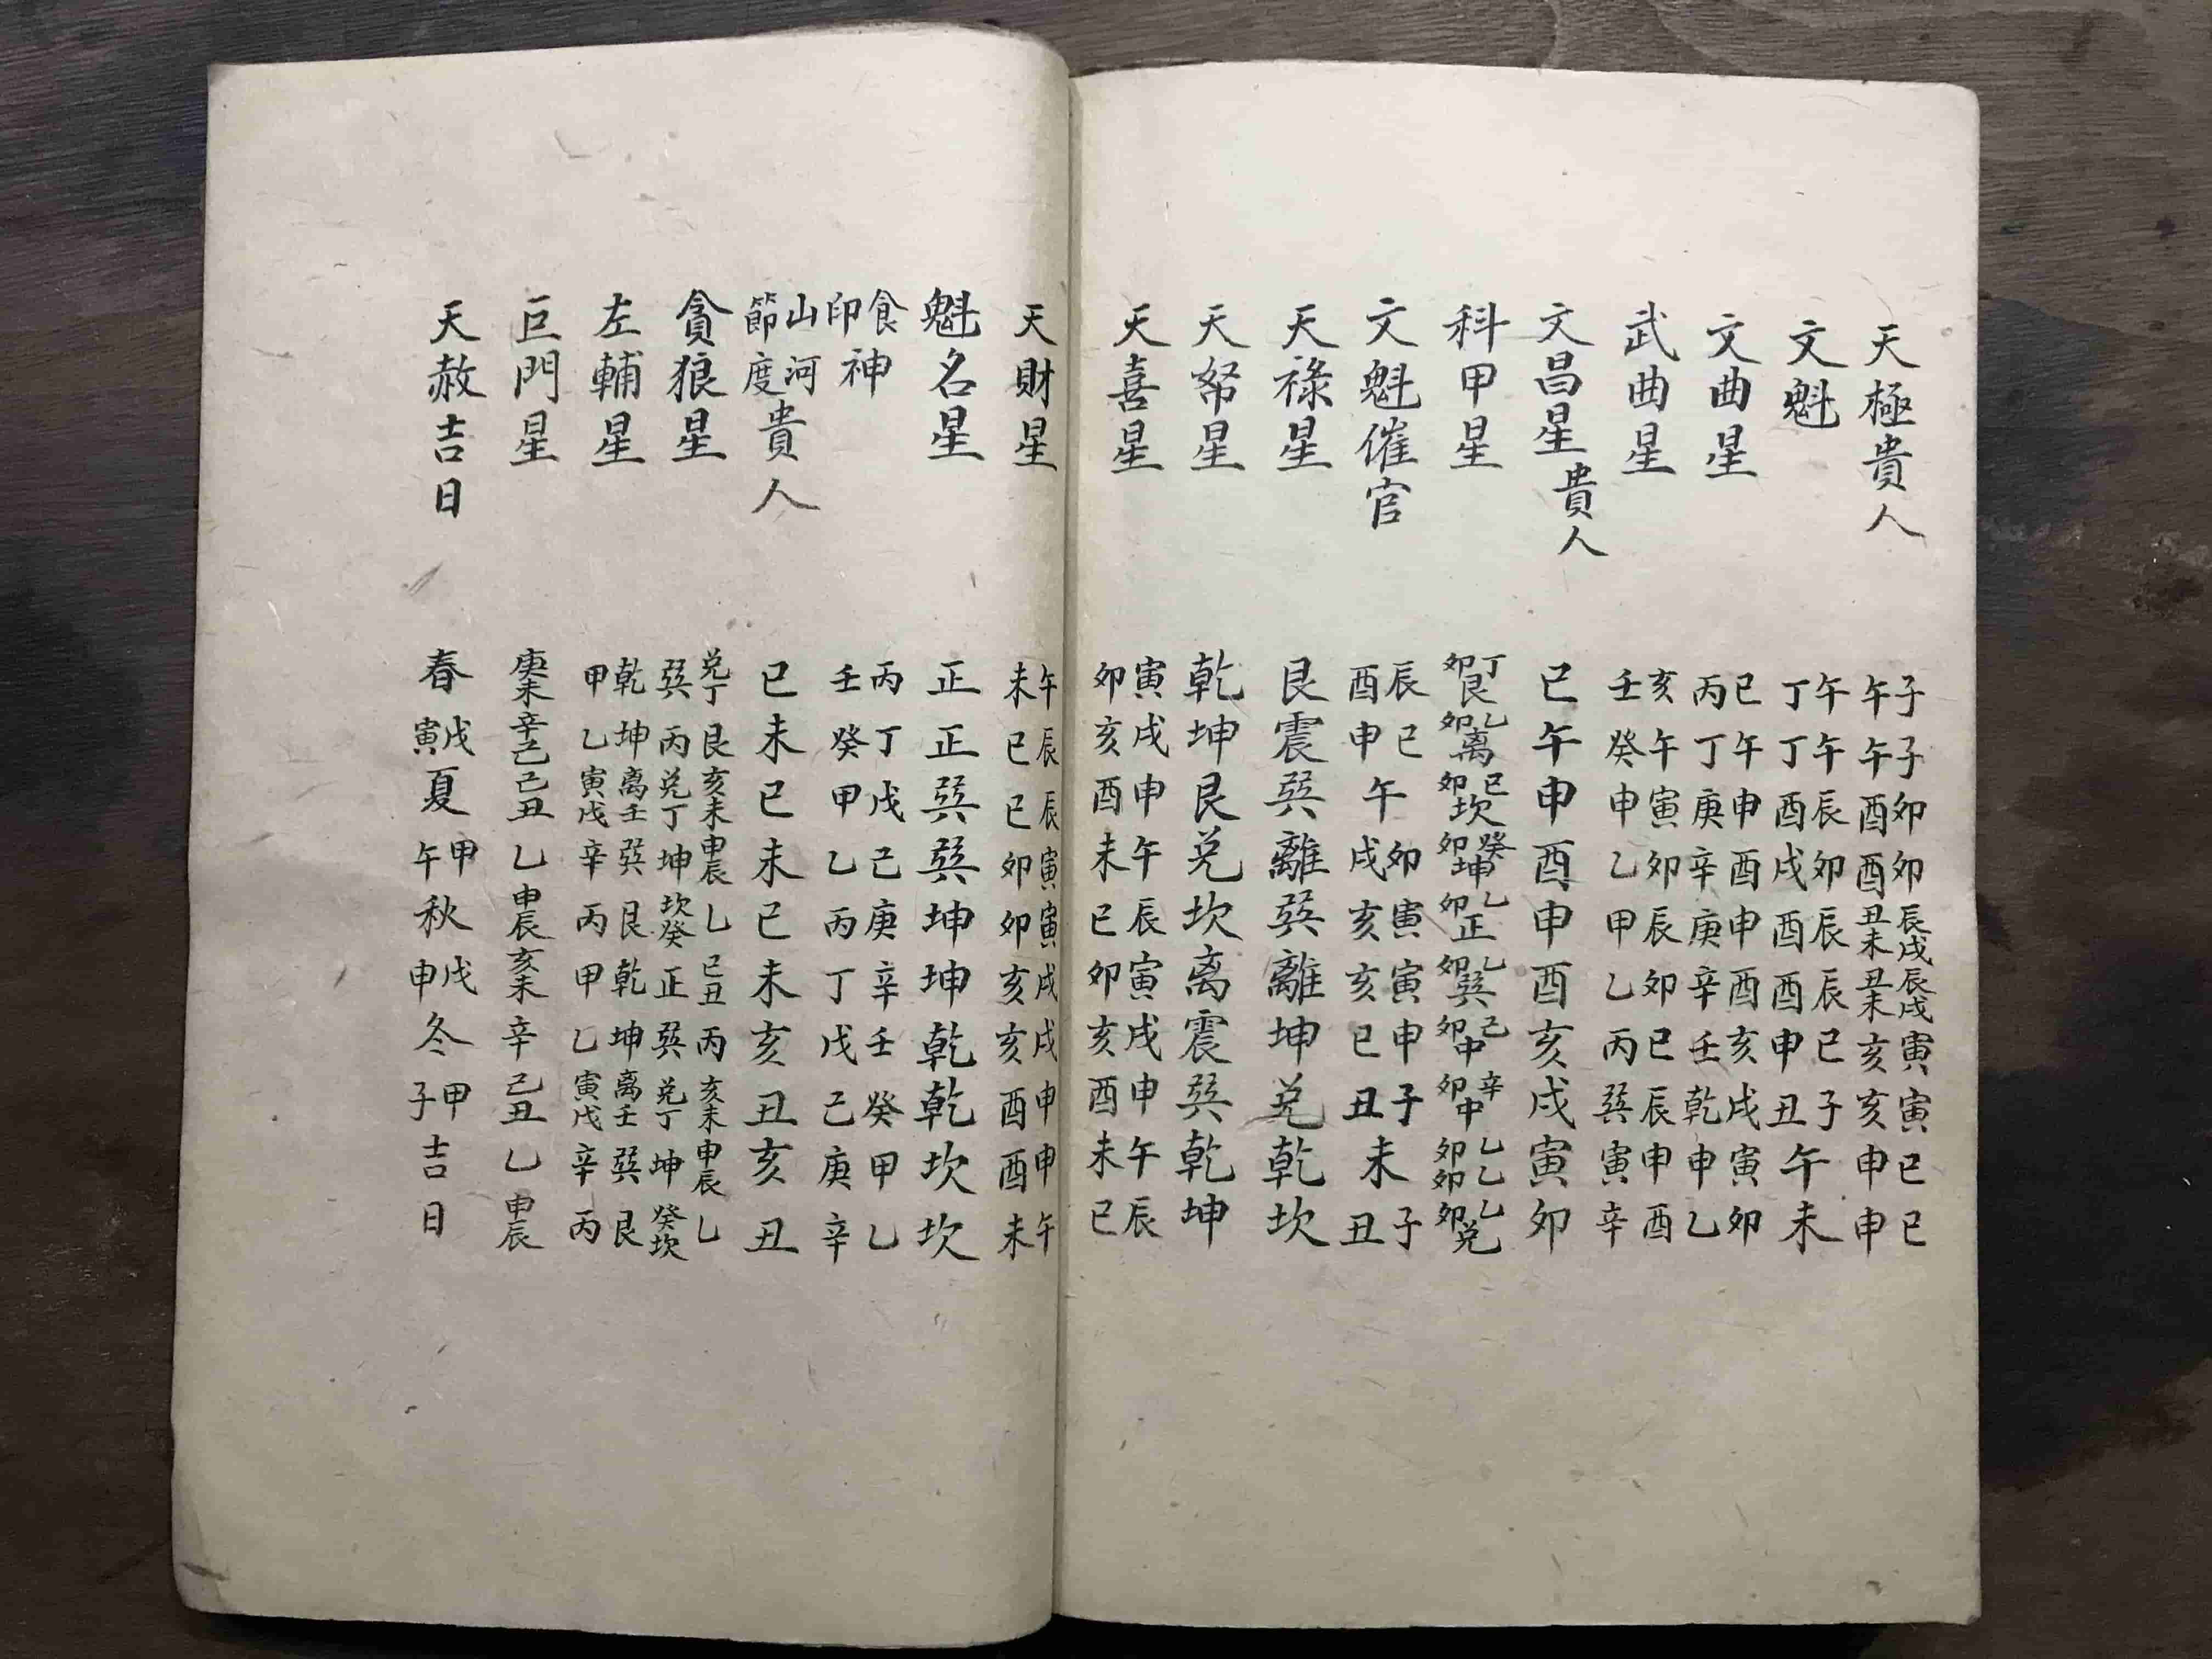 天極貴人 子子卯卯辰戌辰戌寅寅巳巳
午午酉酉丑未丑未亥亥申申
文魁 午午辰卯辰辰巳子
丁丁酉戌酉酉申丑午未
文曲星 巳午申酉申酉亥戌寅卯
丙丁庚辛庚辛壬乾申乙
武曲星 亥午寅卯辰卯巳辰申酉
壬癸申乙甲乙丙巽寅辛
文昌星貴人 巳午申酉申酉亥戌寅卯
科甲星 丁卯艮乙卯离巳卯坎癸卯坤乙卯正乙卯巽己卯中辛卯中乙卯乙卯乙卯兌
文魁催官 辰巳午卯寅寅申子未子
酉申戌亥亥巳丑丑
天祿星 艮震巽離巽離坤兌乾坎
天帑星 乾坤艮兌坎离震巽乾坤
天喜星 寅戌申午辰寅戌申午辰
卯亥酉未巳卯亥酉未巳
天財星 午辰辰寅寅戌戌申申午
未巳巳卯卯亥亥酉酉未
魁名星 正正巽巽坤坤乾乾坎坎
食神印 丙丁戊己庚辛壬癸甲乙
壬癸甲乙丙丁戊己庚辛
山河節度貴人 巳未巳未巳未亥丑亥丑
貪狼星 兌丁艮亥未申辰乙巳丑丙亥未申辰乙
巽丙兌丁坤坎癸正巽兌丁坤癸坎
左輔星 乾坤离壬巽艮乾坤离壬巽艮
甲乙寅戌辛丙甲乙寅戌辛丙
巨門星 庚未辛己己丑乙申辰亥未辛己丑乙申辰
天赦吉日 春戊寅夏甲午秋戊申冬甲子吉日